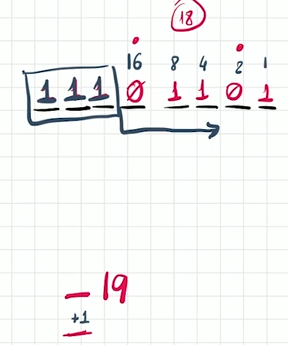 18
16 8 4 2 1
1 1 1 0 1 1 0 1
- 19
+1